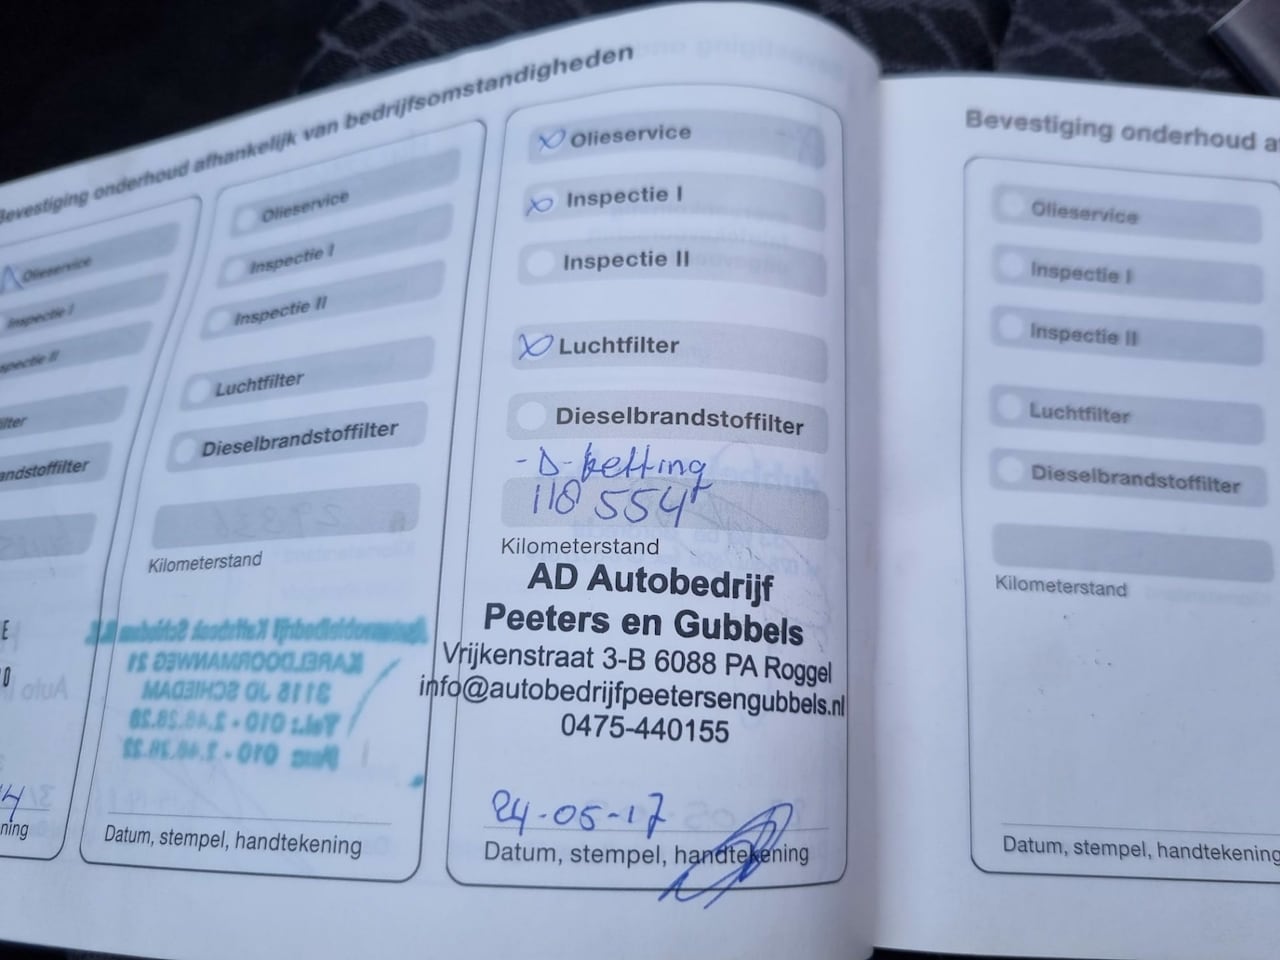 Bevestiging onderhoud afhankelijk van bedrijfsomstandigheden
Olieservice
Inspectie I
Inspectie II
andstoffilter
Olieservice
Inspectie I
Inspectie II
Luchtfilter
Dieselbrandstoffilter
Kilometerstand
KAREL DOORMANWEG 21
3118 JD SCHIEDAM
Datum, stempel, handtekening
Olieservice
Inspectie I
Inspectie II
Luchtfilter
Dieselbrandstoffilter
- D-ketting
118 554
Kilometerstand
AD Autobedrijf
Peeters en Gubbels
Vrijkenstraat 3-B 6088 PA Roggel
info@autobedrijfpeetersengubbels.nl
0475-440155
24-05-17
Datum, stempel, handtekening
Bevestiging onderhoud a
Olieservice
Inspectie I
Inspectie II
Luchtfilter
Dieselbrandstoffilter
Kilometerstand
Datum, stempel, handtekening